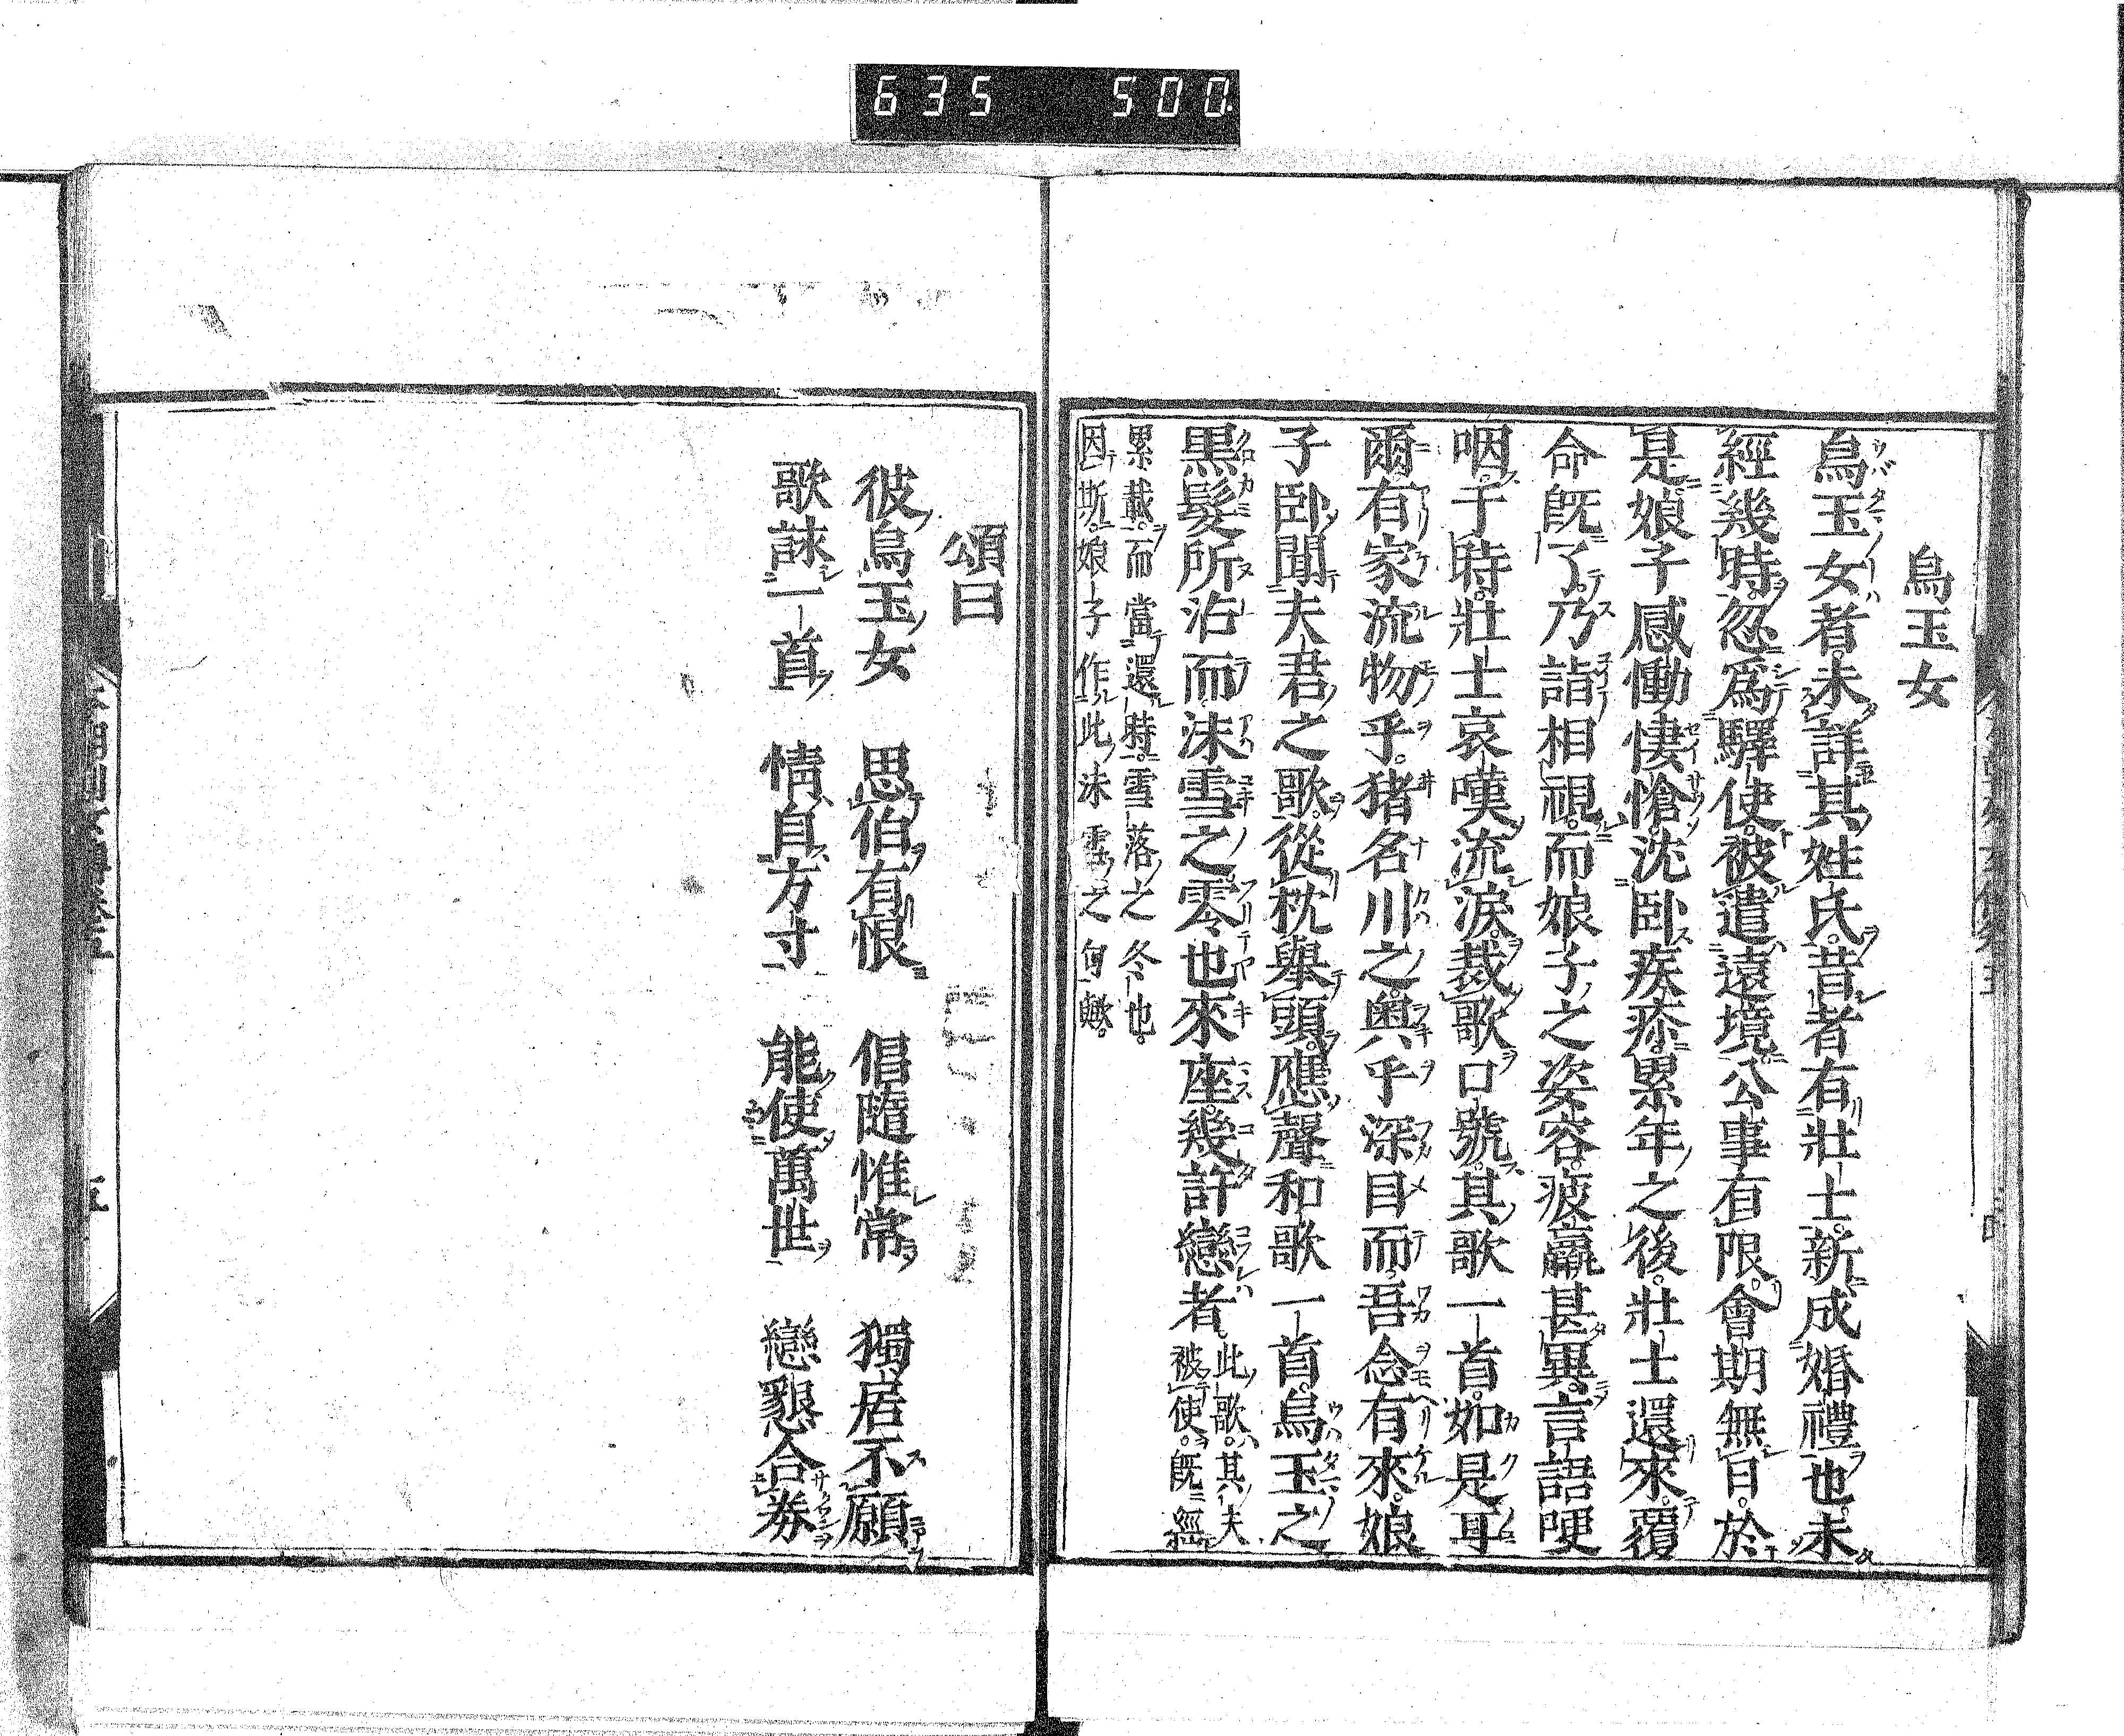 635 500
烏玉女
烏玉女者未詳其姓氏昔者有壯士新成婚禮也未
經幾時忽爲驛使被遣遠境公事有限會期無日於
是娘子感慟悽愴沈臥疾疹累年之後壯士還來覆
命既了乃詣相視而娘子之姿容疲羸甚異言語哽
咽于時壯士哀嘆流淚裁歌口號其歌一首如是耳
爾有家流物乎猪名川之奧乎深目而吾念有來娘
子臥聞夫君之歌從枕擧頭應聲和歌一首烏玉之
黑髮所沾而沫雪之零也來座幾許戀者
此歌其夫
被使既經
累載而當還時雪落之冬也
因斯娘子作此沫雪之句歟
頌曰
彼烏玉女 思伯有恨 倡隨惟常 獨居不願
歌詠一首 情自方寸 能使萬世 戀懇合券